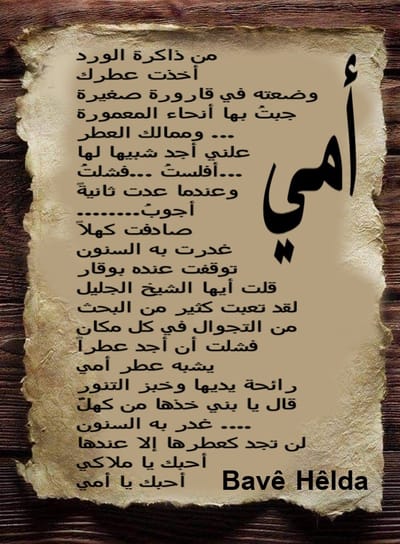 أمي
من ذاكرة الورد
أخذت عطرك
وضعته في قارورة صغيرة
جبتُ بها أنحاء المعمورة
وممالك العطر ...
علني أجد شبيها لها
أفلستُ ...فشلتُ...
وعندما عدت ثانيةً
أجوبُ........
صادفت كهلاً
غدرت به السنون
توقفت عنده بوقار
قلت أيها الشيخ الجليل
لقد تعبت كثير من البحث
من التجوال في كل مكان
فشلت أن أجد عطراً
يشبه عطر أمي
رائحة يديها وخبز التنور
قال يا بني خذها من كهلٍ
غدر به السنون ....
لن تجد كعطرها إلا عندها
أحبك يا ملاكي
أحبك يا أمي
Bavê Hêlda